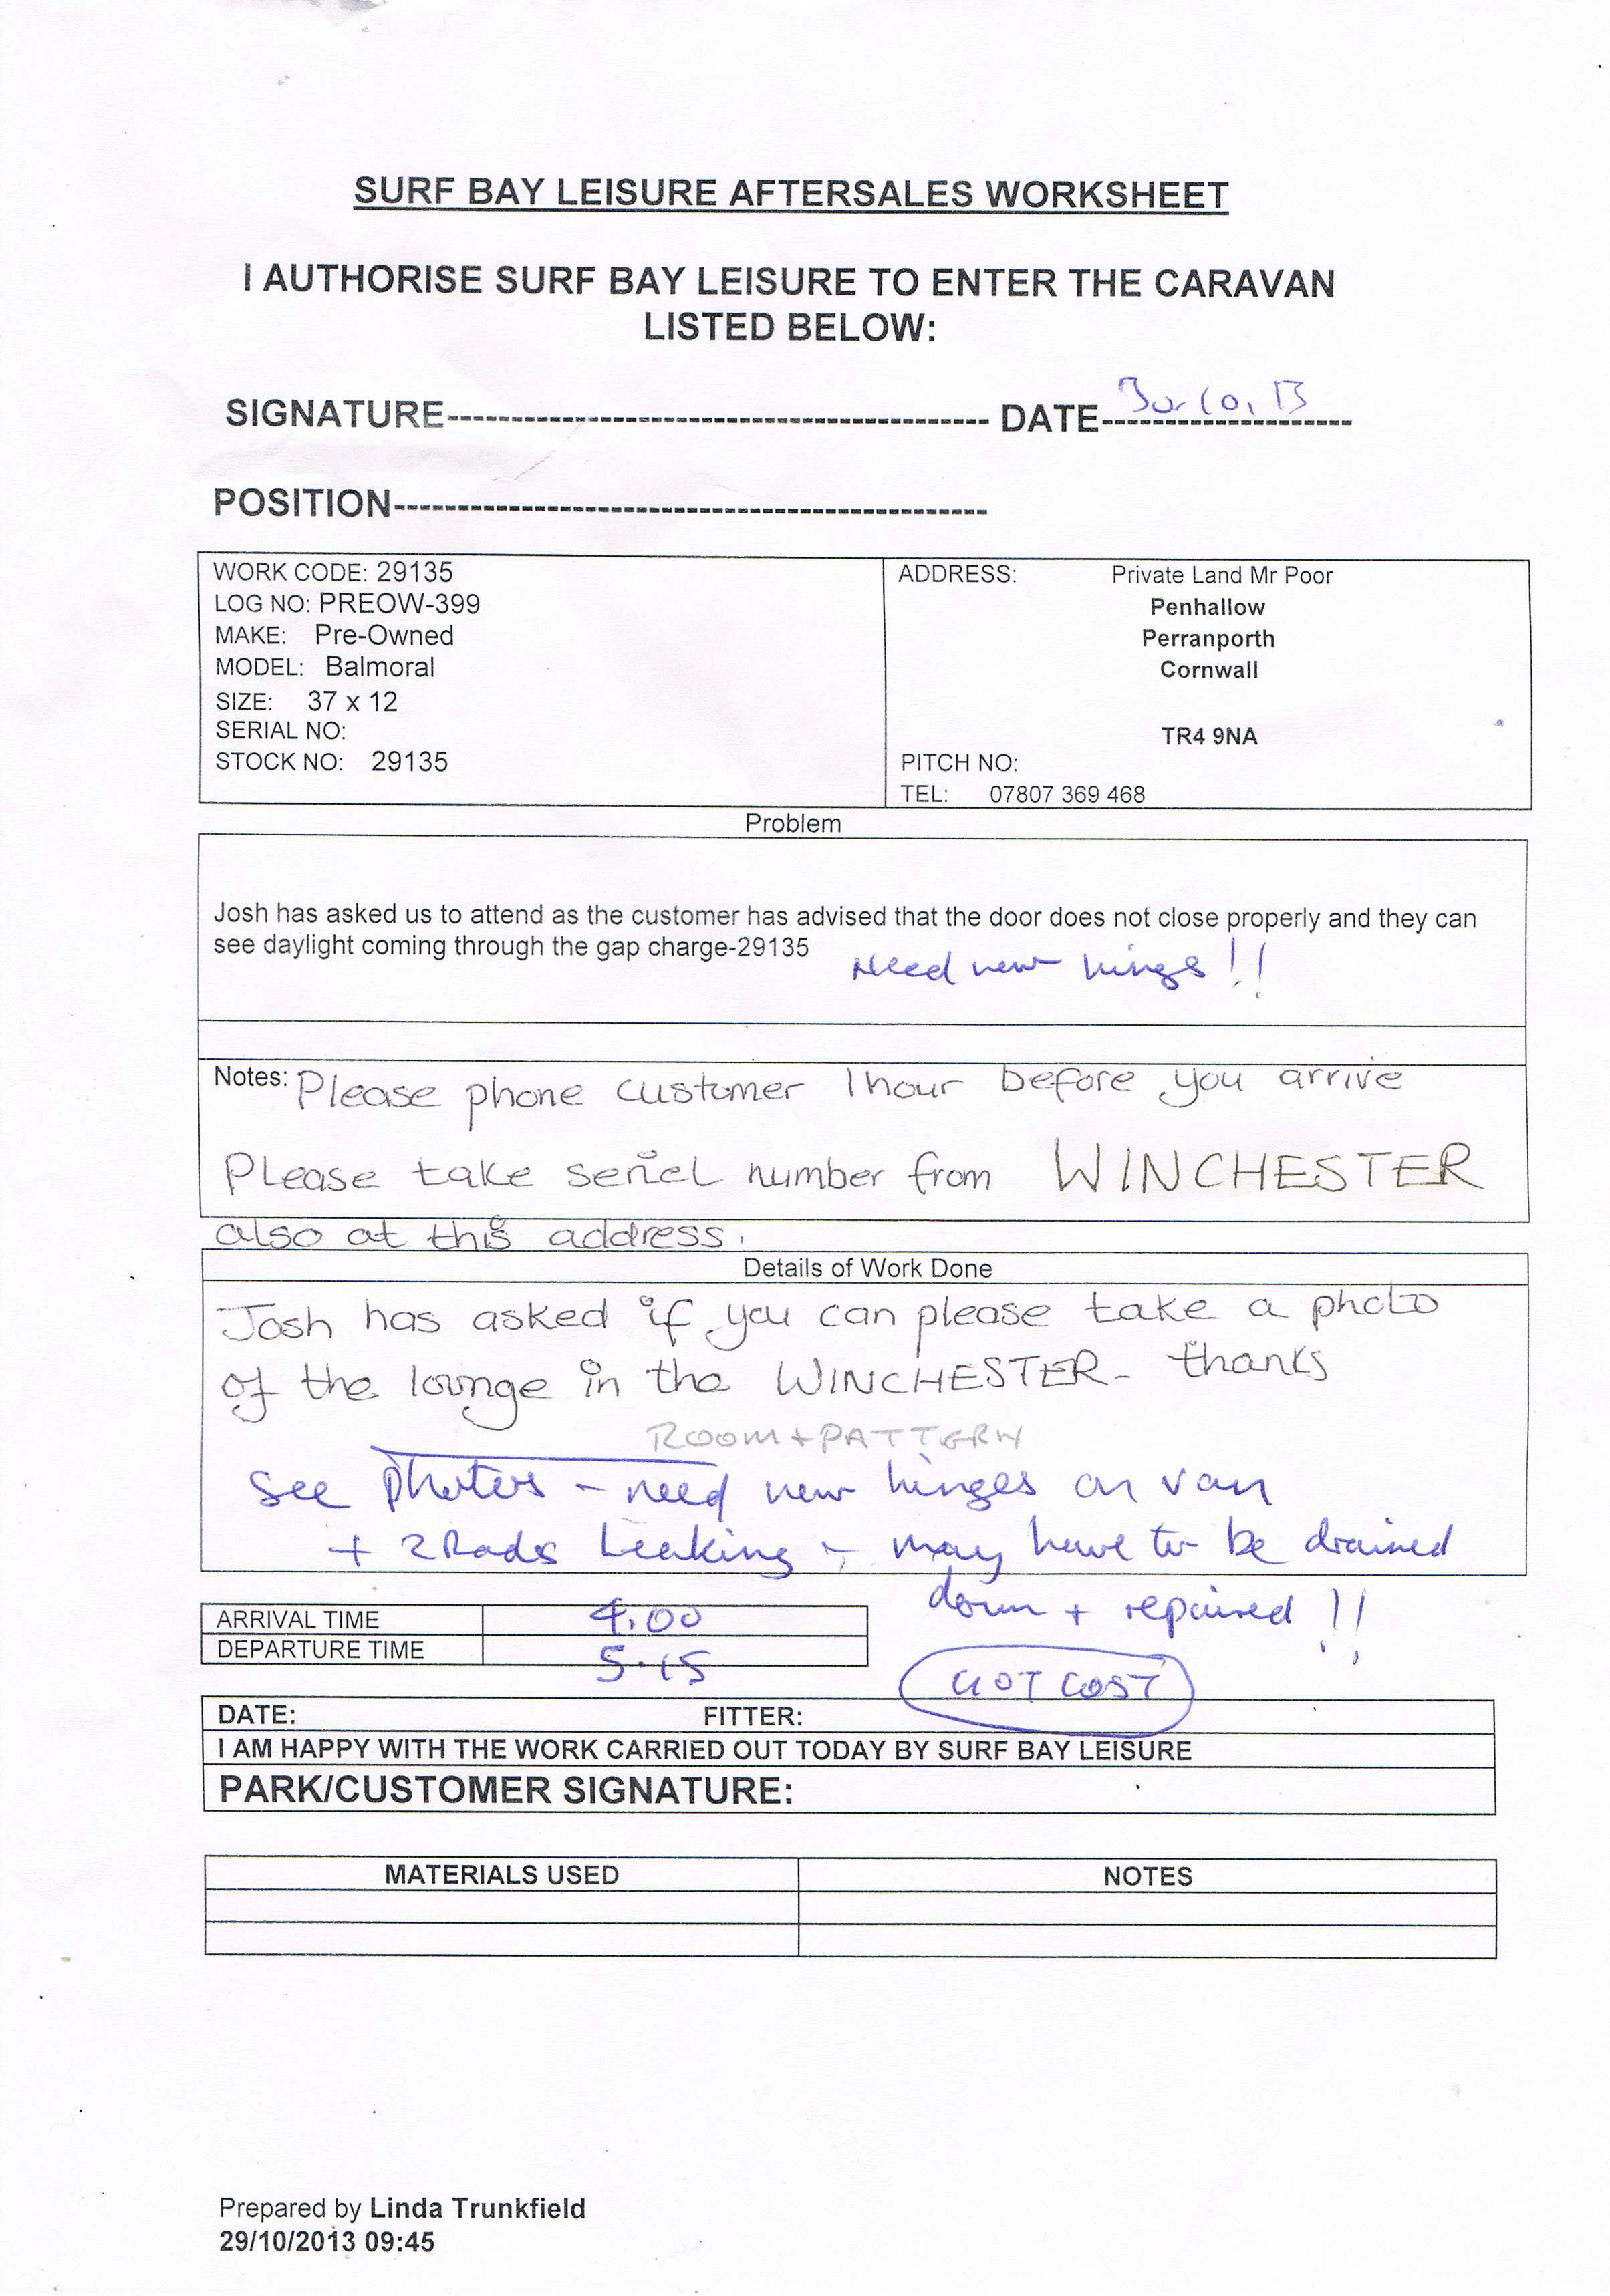 SURF BAY LEISURE AFTERSALES WORKSHEET
I AUTHORISE SURF BAY LEISURE TO ENTER THE CARAVAN
LISTED BELOW:
SIGNATURE---------------------------------------------- DATE--------------------
30.10.13
POSITION-----------------------------------------------
WORK CODE: 29135
LOG NO: PREOW-399
MAKE: Pre-Owned
MODEL: Balmoral
SIZE: 37 x 12
SERIAL NO:
STOCK NO: 29135
ADDRESS: Private Land Mr Poor
Penhallow
Perranporth
Cornwall
TR4 9NA
PITCH NO:
TEL: 07807 369 468
Problem
Josh has asked us to attend as the customer has advised that the door does not close properly and they can
see daylight coming through the gap charge-29135
Need new hinges!!
Notes: Please phone customer 1 hour before you arrive
Please take seriel number from WINCHESTER
also at this address.
Details of Work Done
Josh has asked if you can please take a photo
of the lounge in the WINCHESTER - thanks
ROOM + PATTERN
See photos - need new hinges on van
+ 2 Rads Leaking - may have to be drained
down + repaired!!
ARRIVAL TIME 4.00
DEPARTURE TIME 5.15
COST
DATE: FITTER:
I AM HAPPY WITH THE WORK CARRIED OUT TODAY BY SURF BAY LEISURE
PARK/CUSTOMER SIGNATURE:
MATERIALS USED NOTES
Prepared by Linda Trunkfield
29/10/2013 09:45